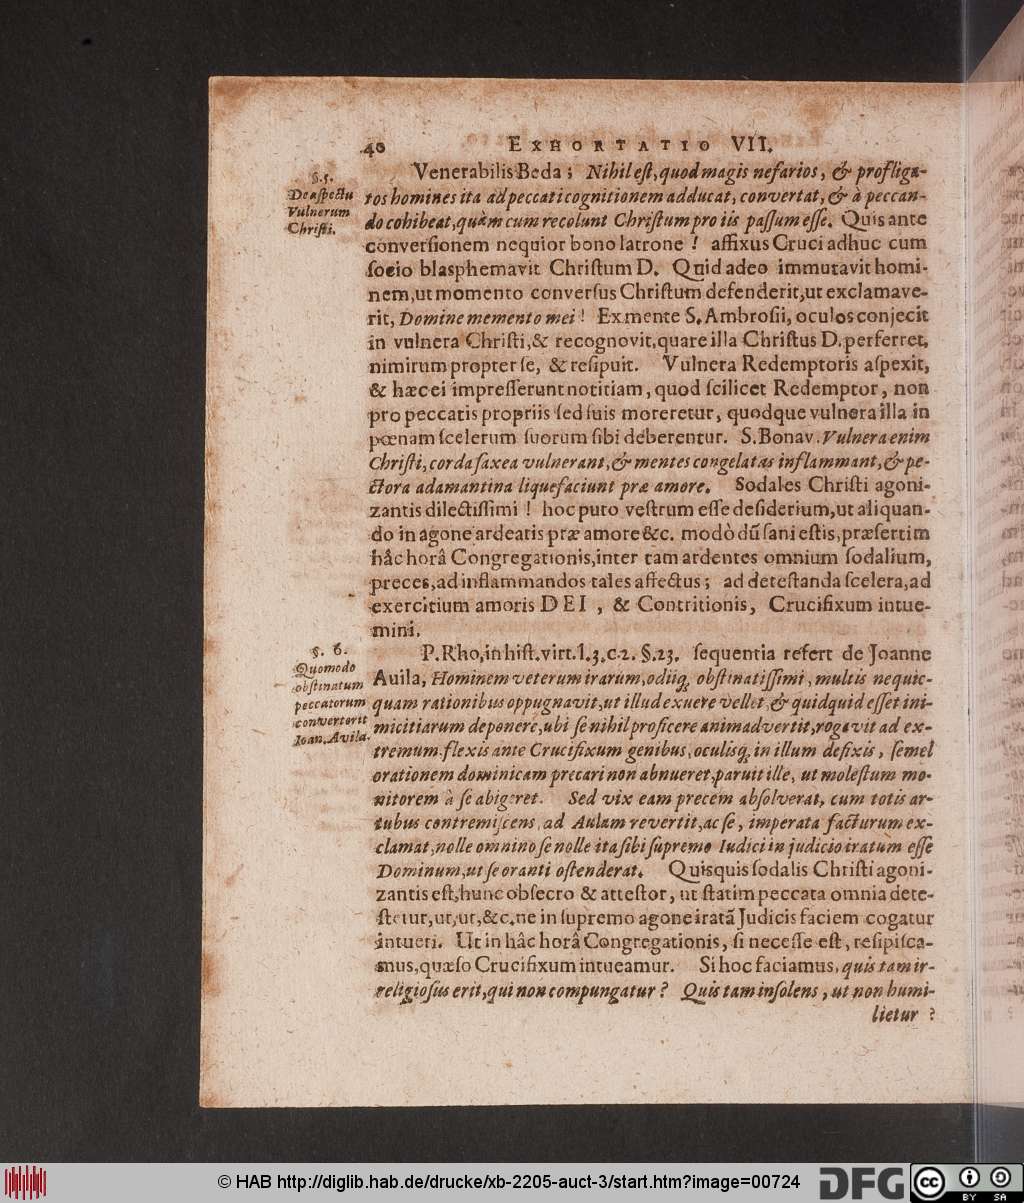 40 EXHORTATIO VII.
§. 5.
De aſpectu
Vulnerum
Chriſti.
Venerabilis Beda; Nihil eſt, quod magis nefarios, & profliga-
tos homines ita ad peccati cognitionem adducat, convertat, & à peccan-
do cohibeat, quàm cum recolunt Chriſtum pro iis paſſum eſſe. Quis ante
converſionem nequior bono latrone! affixus Cruci adhuc cum
ſocio blasphemavit Chriſtum D. Quid adeo immutavit homi-
nem, ut momento converſus Chriſtum defenderit, ut exclamave-
rit, Domine memento mei! Ex mente S. Ambroſii, oculos conjecit
in vulnera Chriſti, & recognovit, quare illa Chriſtus D. perferret,
nimirum propter ſe, & reſipuit. Vulnera Redemptoris aſpexit,
& hæc ei impreſſerunt notitiam, quod ſcilicet Redemptor, non
pro peccatis propriis ſed ſuis moreretur, quodque vulnera illa in
pœnam ſcelerum ſuorum ſibi deberentur. S. Bonav. Vulnera enim
Chriſti, corda ſaxea vulnerant, & mentes congelatas inflammant, & pe-
ctora adamantina liquefaciunt præ amore. Sodales Chriſti agoni-
zantis dilectiſſimi! hoc puto veſtrum eſſe deſiderium, ut aliquan-
do in agone ardeatis præ amore &c. modò dũ ſani eſtis, præſertim
hâc horâ Congregationis, inter tam ardentes omnium ſodalium,
preces, ad inflammandos tales affectus; ad deteſtanda ſcelera, ad
exercitium amoris DEI, & Contritionis, Crucifixum intue-
mini.
§. 6.
Quomodo
obſtinatum
peccatorum
converterit
Joan. Avila.
P. Rho, in hiſt. virt. l. 3. c. 2. §. 23. ſequentia refert de Joanne
Avila, Hominem veterum irarum, odiiq; obſtinatiſſimi, multis nequic-
quam rationibus oppugnavit, ut illud exuere vellet, & quidquid eſſet ini-
micitiarum deponere, ubi ſe nihil proficere animadvertit, rogavit ad ex-
tremum flexis ante Crucifixum genibus, oculisq; in illum defixis, ſemel
orationem dominicam precari non abnueret, paruit ille, ut moleſtum mo-
nitorem à ſe abigeret. Sed vix eam precem abſolverat, cum totis ar-
tubus contremiſcens, ad Aulam revertit, ac ſe, imperata facturum ex-
clamat, nolle omnino ſe nolle ita ſibi ſupremo Iudici in judicio iratum eſſe
Dominum, ut ſe oranti oſtenderat. Quisquis ſodalis Chriſti agoni-
zantis eſt, hunc obſecro & atteſtor, ut ſtatim peccata omnia dete-
ſtetur, ut, ut, &c. ne in ſupremo agone iratã Judicis faciem cogatur
intueri. Ut in hâc horâ Congregationis, ſi neceſſe eſt, reſipiſca-
mus, quæſo Crucifixum intueamur. Si hoc faciamus, quis tam ir-
religioſus erit, qui non compungatur? Quis tam inſolens, ut non humi-
lietur?
© HAB http://diglib.hab.de/drucke/xb-2205-auct-3/start.htm?image=00724
DFG
cc
BY SA